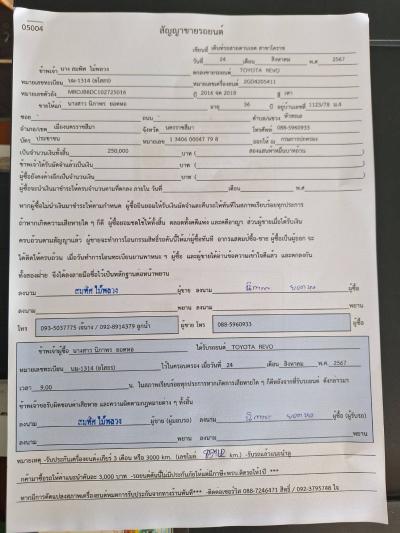 05004
สัญญาขายรถยนต์
เขียนที่ เต็นท์รถสายตามเอด สาขาโคราช
วันที่ 24 เดือน สิงหาคม พ.ศ 2567
ข้าพเจ้า นาง สมพิศ ไม้พลวง ตกลงขายรถยนต์ TOYOTA REVO
หมายเลขทะเบียน นม-1314 (ยโสธร) หมายเลขเครื่องยนต์ 2GD4205411
หมายเลขตัวถัง MR0JB8DC102725016 ปี 2016 จด 2018 สี เทา
ขายให้แก่ นางสาว นิภาพร ยอดทอ อายุ 36 ปี อยู่บ้านเลขที่ 1123/78 ม.4
ซอย - ถนน - ตำบล/แขวง หัวทะเล
อำเภอ/เขต เมืองนครราชสีมา จังหวัด นครราชสีมา โทรศัพท์ 088-5960933
บัตร ประชาชน หมายเลข 1 3406 00047 79 8 ออกให้ ณ กรมการปกครอง
เป็นจำนวนเงินทั้งสิ้น 250,000 บาท ( สองแสนห้าหมื่นบาทถ้วน )
ข้าพเจ้าได้รับมัดจำแล้วเป็นเงิน บาท ( )
ผู้ซื้อยังคงค้างอีกเป็นจำนวนเงิน บาท ( )
ผู้ซื้อจะนำเงินมาชำระให้ครบจำนวนตามที่ตกลง ภายใน วันที่ เดือน พ.ศ
หากผู้ซื้อไม่นำเงินมาชำระให้ตามกำหนด ผู้ซื้อยินยอมให้รับเงินมัดจำและคืนรถให้ทันทีในสภาพเรียบร้อยทุกประการ
ถ้าหากเกิดความเสียหายใด ๆ ก็ดี ผู้ซื้อยอมชดใช้ให้ทั้งสิ้น ตลอดทั้งคดีแพ่ง และคดีอาญา ส่วนผู้ขายเมื่อได้รับเงิน
ครบถ้วนตามสัญญาแล้ว ผู้ขายจะทำการโอนกรรมสิทธิ์รถคันนี้ให้แก่ผู้ซื้อทันที
ทั้งสองฝ่าย จึงได้ลงลายมือชื่อไว้เป็นหลักฐานต่อหน้าพยาน
ลงนาม สมพิศ ไม้พลวง ผู้ขาย ลงนาม นิภาพร ยอดทอ ผู้ซื้อ
ลงนาม พยาน ลงนาม พยาน
โทร 093-5037775 / 092-8914379 ลูกน้ำ ผู้ขาย โทร 088-5960933 ผู้ซื้อ
ข้าพเจ้าผู้ซื้อ นางสาว นิภาพร ยอดทอ ได้รับรถยนต์ TOYOTA REVO
หมายเลขทะเบียน นม-1314 (ยโสธร) ไว้ในครอบครอง เมื่อวันที่ 24 เดือน สิงหาคม พ.ศ 2567
เวลา 9.00 น. ในสภาพเรียบร้อยทุกประการหากเกิดการเสียหายใด ๆ ก็ดีหลังจากที่รับรถยนต์ ดังกล่าวมา
ข้าพเจ้าขอรับผิดชอบค่าเสียหาย และความผิดตามกฎหมายต่าง ๆ ทั้งสิ้น
ลงนาม สมพิศ ไม้พลวง ผู้ขาย (ผู้มอบรถ) ลงนาม นิภาพร ยอดทอ ผู้ซื้อ (ผู้รับรถ)
ลงนาม พยาน ลงนาม พยาน
หมายเหตุ -รับประกันเครื่องยนต์+เกียร์ 3 เดือน หรือ 3000 km. (เลขไมล์ km.) -รับรถแล้วแนะนำลูก
ค้ามาซื้อรถให้ค่าแนะนำคันละ 3,000 บาท -รถยนต์คันนี้ไม่มีประกันภัยให้แต่มีภาษี+พรบ.จัดรถให้1ปี ***
หากมีการดัดแปลงสภาพเครื่องยนต์หมดการรับประกันจากทางร้านทันที*** -ติดต่อเซอร์วิส 088-7246471 สิทธิ์ / 092-3795748 ใจ